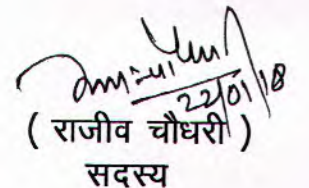 22/01/18
( राजीव चौधरी )
सदस्य